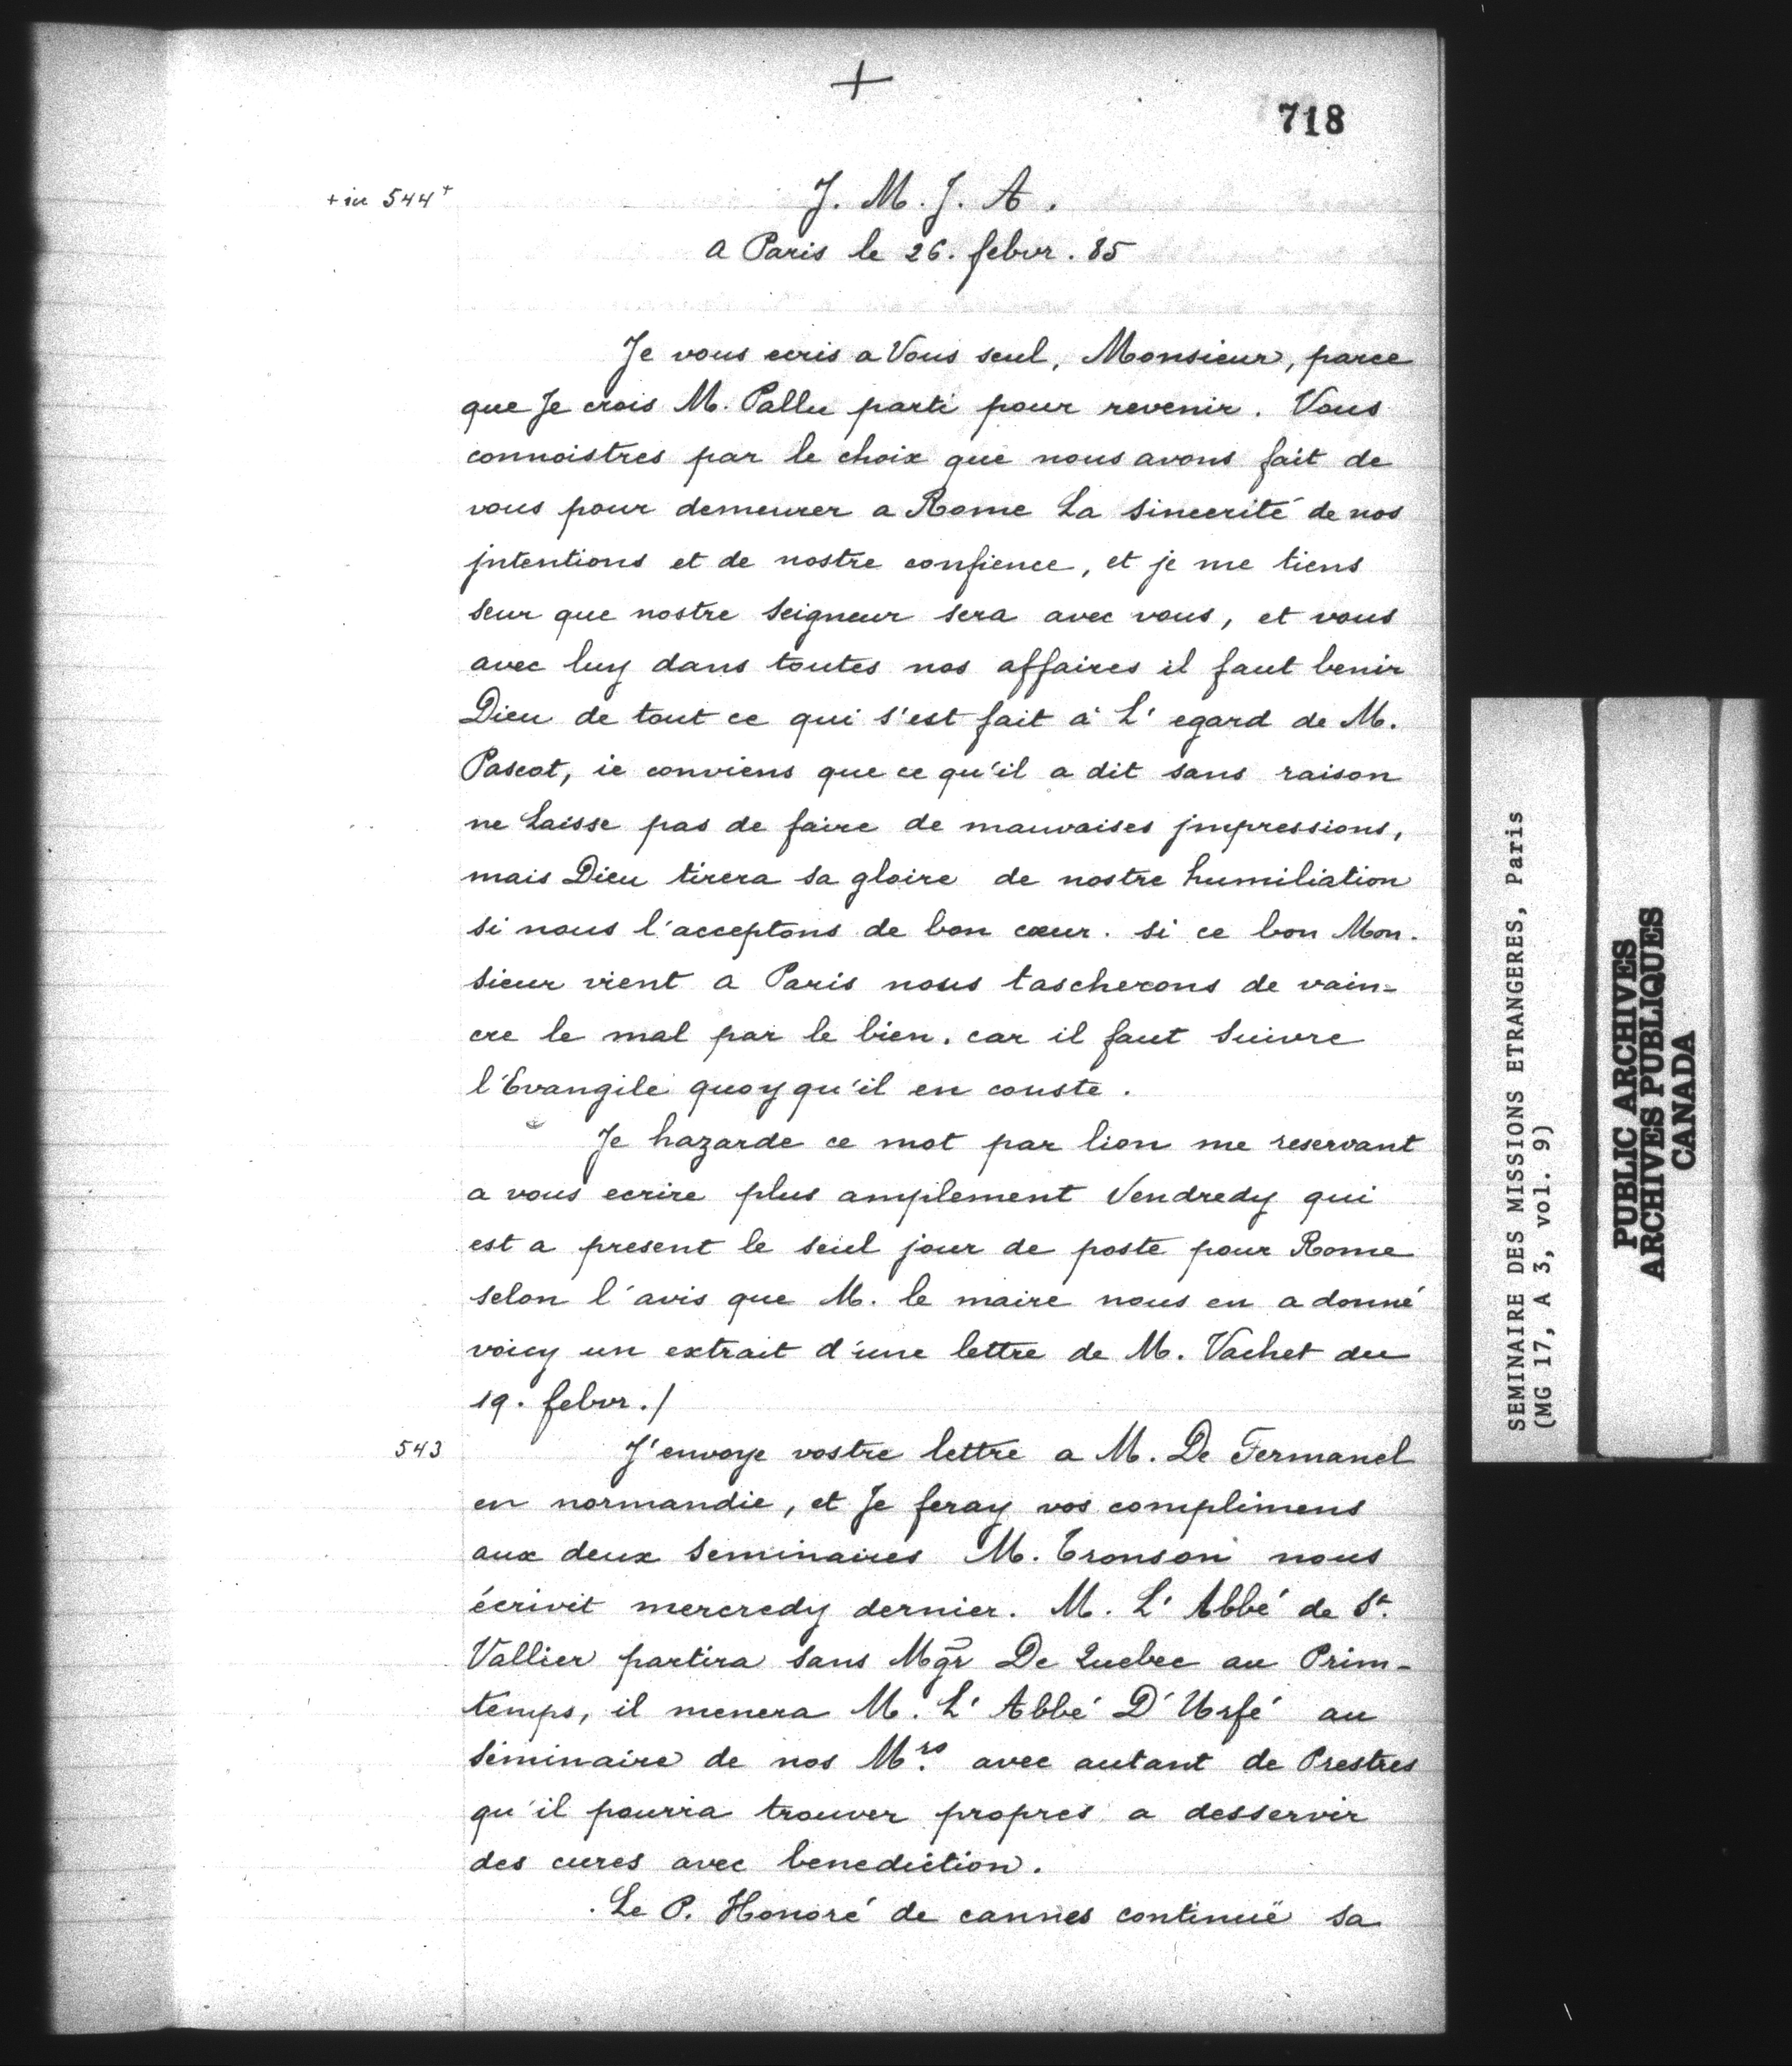 +
718
+ in 544+
J. M. J. A.
a Paris le 26. febvr. 85
Je vous ecris a Vous seul, Monsieur, parce
que Je crois M. Pallu parti pour revenir. Vous
connoistres par le choix que nous avons fait de
vous pour demeurer a Rome La sincerité de nos
jntentions et de nostre confience, et je me tiens
seur que nostre Seigneur sera avec vous, et vous
avec luy dans toutes nos affaires il faut benir
Dieu de tout ce qui s'est fait à L'egard de M.
Pascot, ie conviens que ce qu'il a dit sans raison
ne Laisse pas de faire de mauvaises jmpressions,
mais Dieu tirera sa gloire de nostre humiliation
si nous l'acceptons de bon cœur. si ce bon Mon-
sieur vient a Paris nous tascherons de vain-
cre le mal par le bien. car il faut suivre
l'Evangile quoy qu'il en couste.
Je hazarde ce mot par lion me reservant
a vous ecrire plus amplement Vendredy qui
est a present le seul jour de poste pour Rome
selon l'avis que M. le maire nous en a donné
voicy un extrait d'une lettre de M. Vachet du
19. febvr./
543
J'envoye vostre lettre a M. De Fermanel
en normandie, et Je feray vos complimens
aux deux seminaires M. Tronson nous
écrivit mercredy dernier. M. L'Abbé de St.
Vallier partira sans Mgr De Quebec au Prim-
temps, il menera M. L'Abbé D'Urfé au
séminaire de nos Mrs. avec autant de Prestres
qu'il pourra trouver propres a desservir
des cures avec benediction.
Le P. Honoré de cannes continuë sa
SEMINAIRE DES MISSIONS ETRANGERES, Paris
(MG 17, A 3, vol. 9)
PUBLIC ARCHIVES
ARCHIVES PUBLIQUES
CANADA